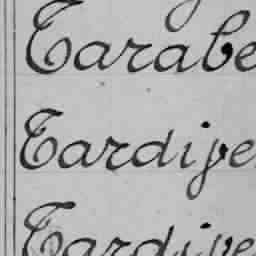 Tarabe
Tardive
Tardive